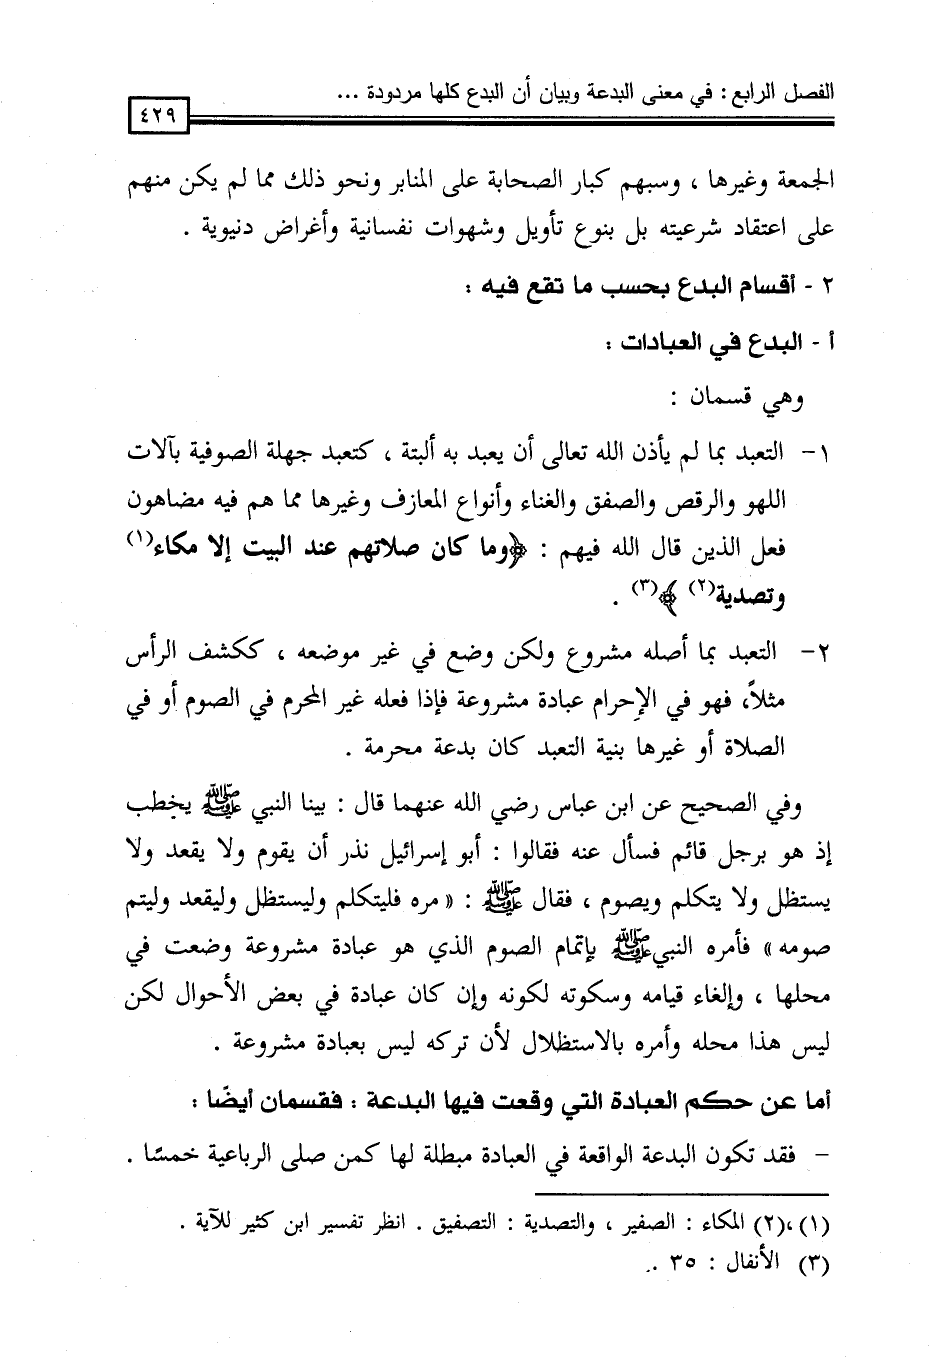 الفصل الرابع : في معنى البدعة وبيان أن البدع كلها مردودة ...
٤٢٩
الجمعة وغيرها ، وسبهم كبار الصحابة على المنابر ونحو ذلك مما لم يكن منهم
على اعتقاد شرعيته بل بنوع تأويل وشهوات نفسانية وأغراض دنيوية .
٢ - أقسام البدع بحسب ما تقع فيه :
أ - البدع في العبادات :
وهي قسمان :
١- التعبد بما لم يأذن الله تعالى أن يعبد به ألبتة ، كتعبد جهلة الصوفية بآلات
اللهو والرقص والصفق والغناء وأنواع المعازف وغيرها مما هم فيه مضاهون
فعل الذين قال الله فيهم : ﴿وما كان صلاتهم عند البيت إلا مكاء(١)
وتصدية(٢) ﴾(٣) .
٢- التعبد بما أصله مشروع ولكن وضع في غير موضعه ، ككشف الرأس
مثلاً، فهو في الإحرام عبادة مشروعة فإذا فعله غير المحرم في الصوم أو في
الصلاة أو غيرها بنية التعبد كان بدعة محرمة .
وفي الصحيح عن ابن عباس رضي الله عنهما قال : بينا النبي ﷺ يخطب
إذ هو برجل قائم فسأل عنه فقالوا : أبو إسرائيل نذر أن يقوم ولا يقعد ولا
يستظل ولا يتكلم ويصوم ، فقال ﷺ : « مره فليتكلم وليستظل وليقعد وليتم
صومه » فأمره النبي ﷺ بإتمام الصوم الذي هو عبادة مشروعة وضعت في
محلها ، وإلغاء قيامه وسكوته لكونه وإن كان عبادة في بعض الأحوال لكن
ليس هذا محله وأمره بالاستظلال لأن تركه ليس بعبادة مشروعة .
أما عن حكم العبادة التي وقعت فيها البدعة : فقسمان أيضًا :
- فقد تكون البدعة الواقعة في العبادة مبطلة لها كمن صلى الرباعية خمسًا .
(١)،(٢) المكاء : الصفير ، والتصدية : التصفيق . انظر تفسير ابن كثير للآية .
(٣) الأنفال : ٣٥ .